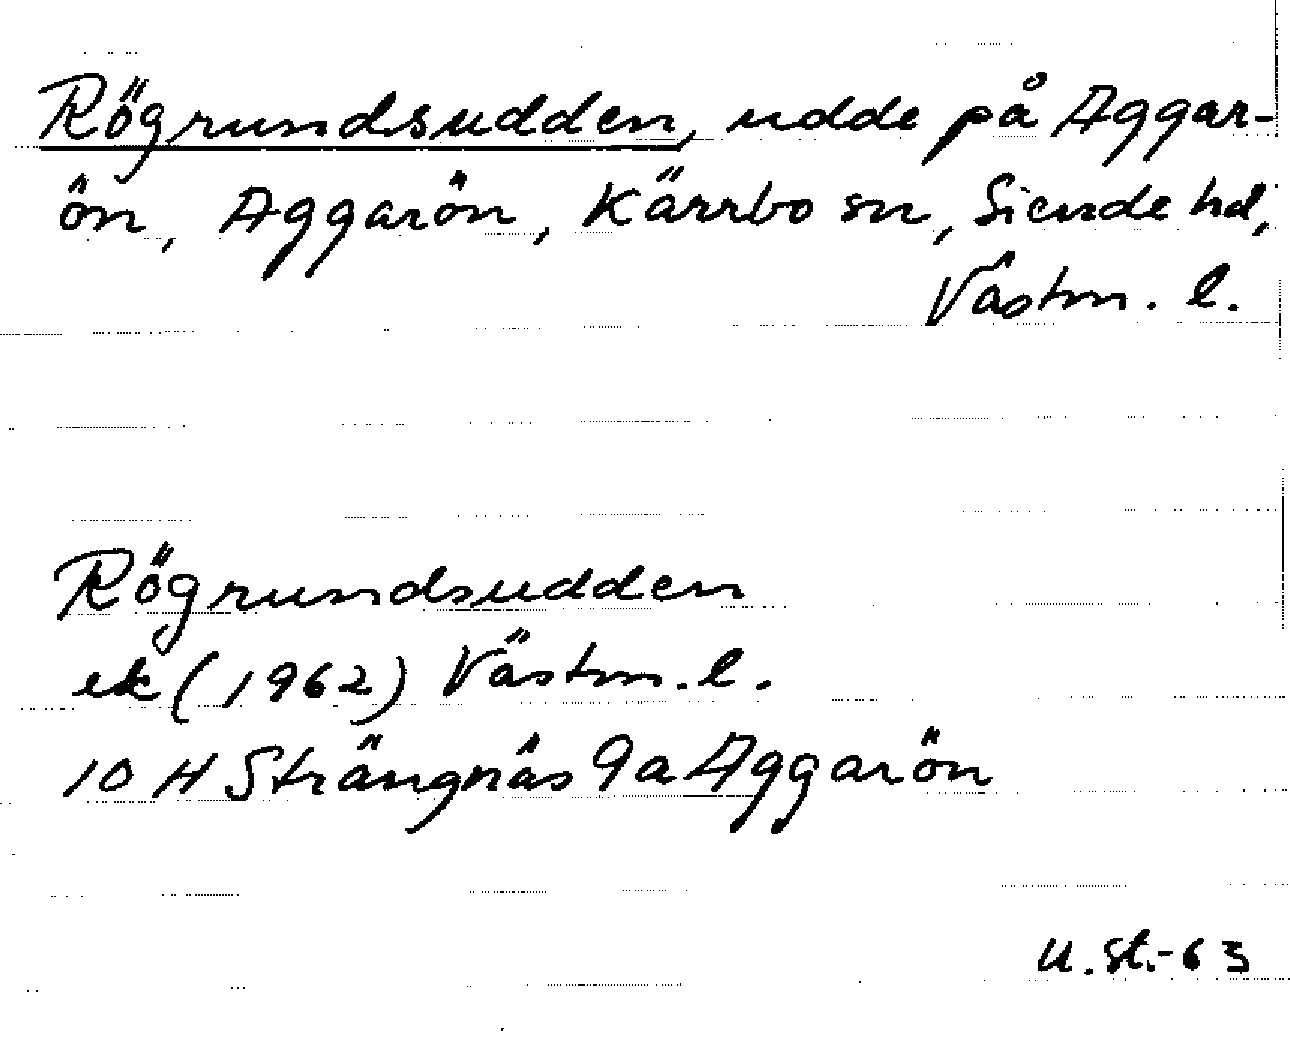 Rögrundsudden, udde på Aggar-
ön, Aggarön, Kärrbo sn, Siende hd,
Västm. l.
Rögrundsudden
ek (1962) Västm. l.
10 H Strängnäs 9a Aggarön
U. St.-63